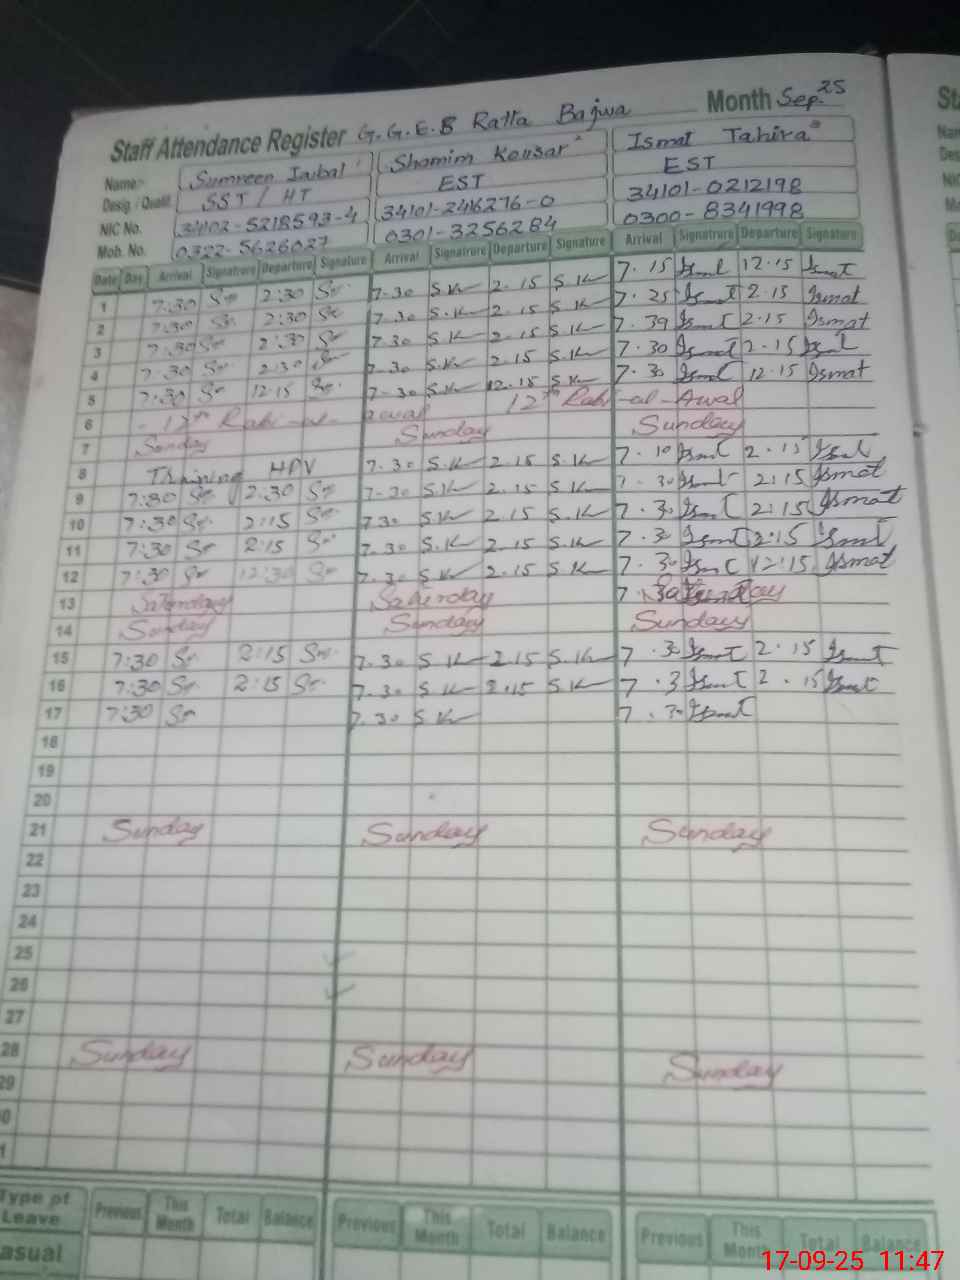 Staff Attendance Register G.G.E.S Ratta Bajwa Month Sep. 25
Name:- Sumreen Iqbal Shamim Kousar Ismat Tahira
Desig. / Qualif. SST / HT EST EST
NIC No. 34102-5218593-4 34101-2416276-0 34101-0212198
Mob. No. 0322-5626027 0301-3256284 0300-8341998
Date Day Arrival Signature Departure Signature Arrival Signature Departure Signature Arrival Signature Departure Signature
1 7:30 Sr 2:30 Sr 7.30 S.K 2.15 S.K 7.15 Ismat 12.15 Ismat
2 7:30 Sr 2:30 Sr 7.30 S.K 2.15 S.K 7.25 Ismat 2.15 Ismat
3 7:30 Sr 2:30 Sr 7.30 S.K 2.15 S.K 7.39 Ismat 2.15 Ismat
4 7:30 Sr 2:30 Sr 7.30 S.K 2.15 S.K 7.30 Ismat 2.15 Ismat
5 7:30 Sr 12:15 Sr 7.30 S.K 12.15 S.K 7.30 Ismat 12.15 Ismat
6 12th Rabi-ul-awal 12th Rabi-ul-Awal
7 Sunday Sunday Sunday
8 Training HPV 7.30 S.K 2.15 S.K 7.10 Ismat 2.15 Ismat
9 7:30 Sr 2:30 Sr 7.30 S.K 2.15 S.K 7.30 Ismat 2:15 Ismat
10 7:30 Sr 2:15 Sr 7.30 S.K 2.15 S.K 7.30 Ismat 2:15 Ismat
11 7:30 Sr 2:15 Sr 7.30 S.K 2.15 S.K 7.30 Ismat 2:15 Ismat
12 7:30 Sr 12:30 Sr 7.30 S.K 2.15 S.K 7.30 Ismat 12:15 Ismat
13 Saturday Saturday 7. Saturday
14 Sunday Sunday Sunday
15 7:30 Sr 2:15 Sr 7.30 S.K 2.15 S.K 7.30 Ismat 2.15 Ismat
16 7:30 Sr 2:15 Sr 7.30 S.K 2.15 S.K 7.3 Ismat 2.15 Ismat
17 7:30 Sr 7.30 S.K 7.30 Ismat
18
19
20
21 Sunday Sunday Sunday
22
23
24
25
26
27
28 Sunday Sunday Sunday
29
0
1
Type of Leave Previous This Month Total Balance Previous This Month Total Balance Previous This Month Total Balance
asual
17-09-25 11:47